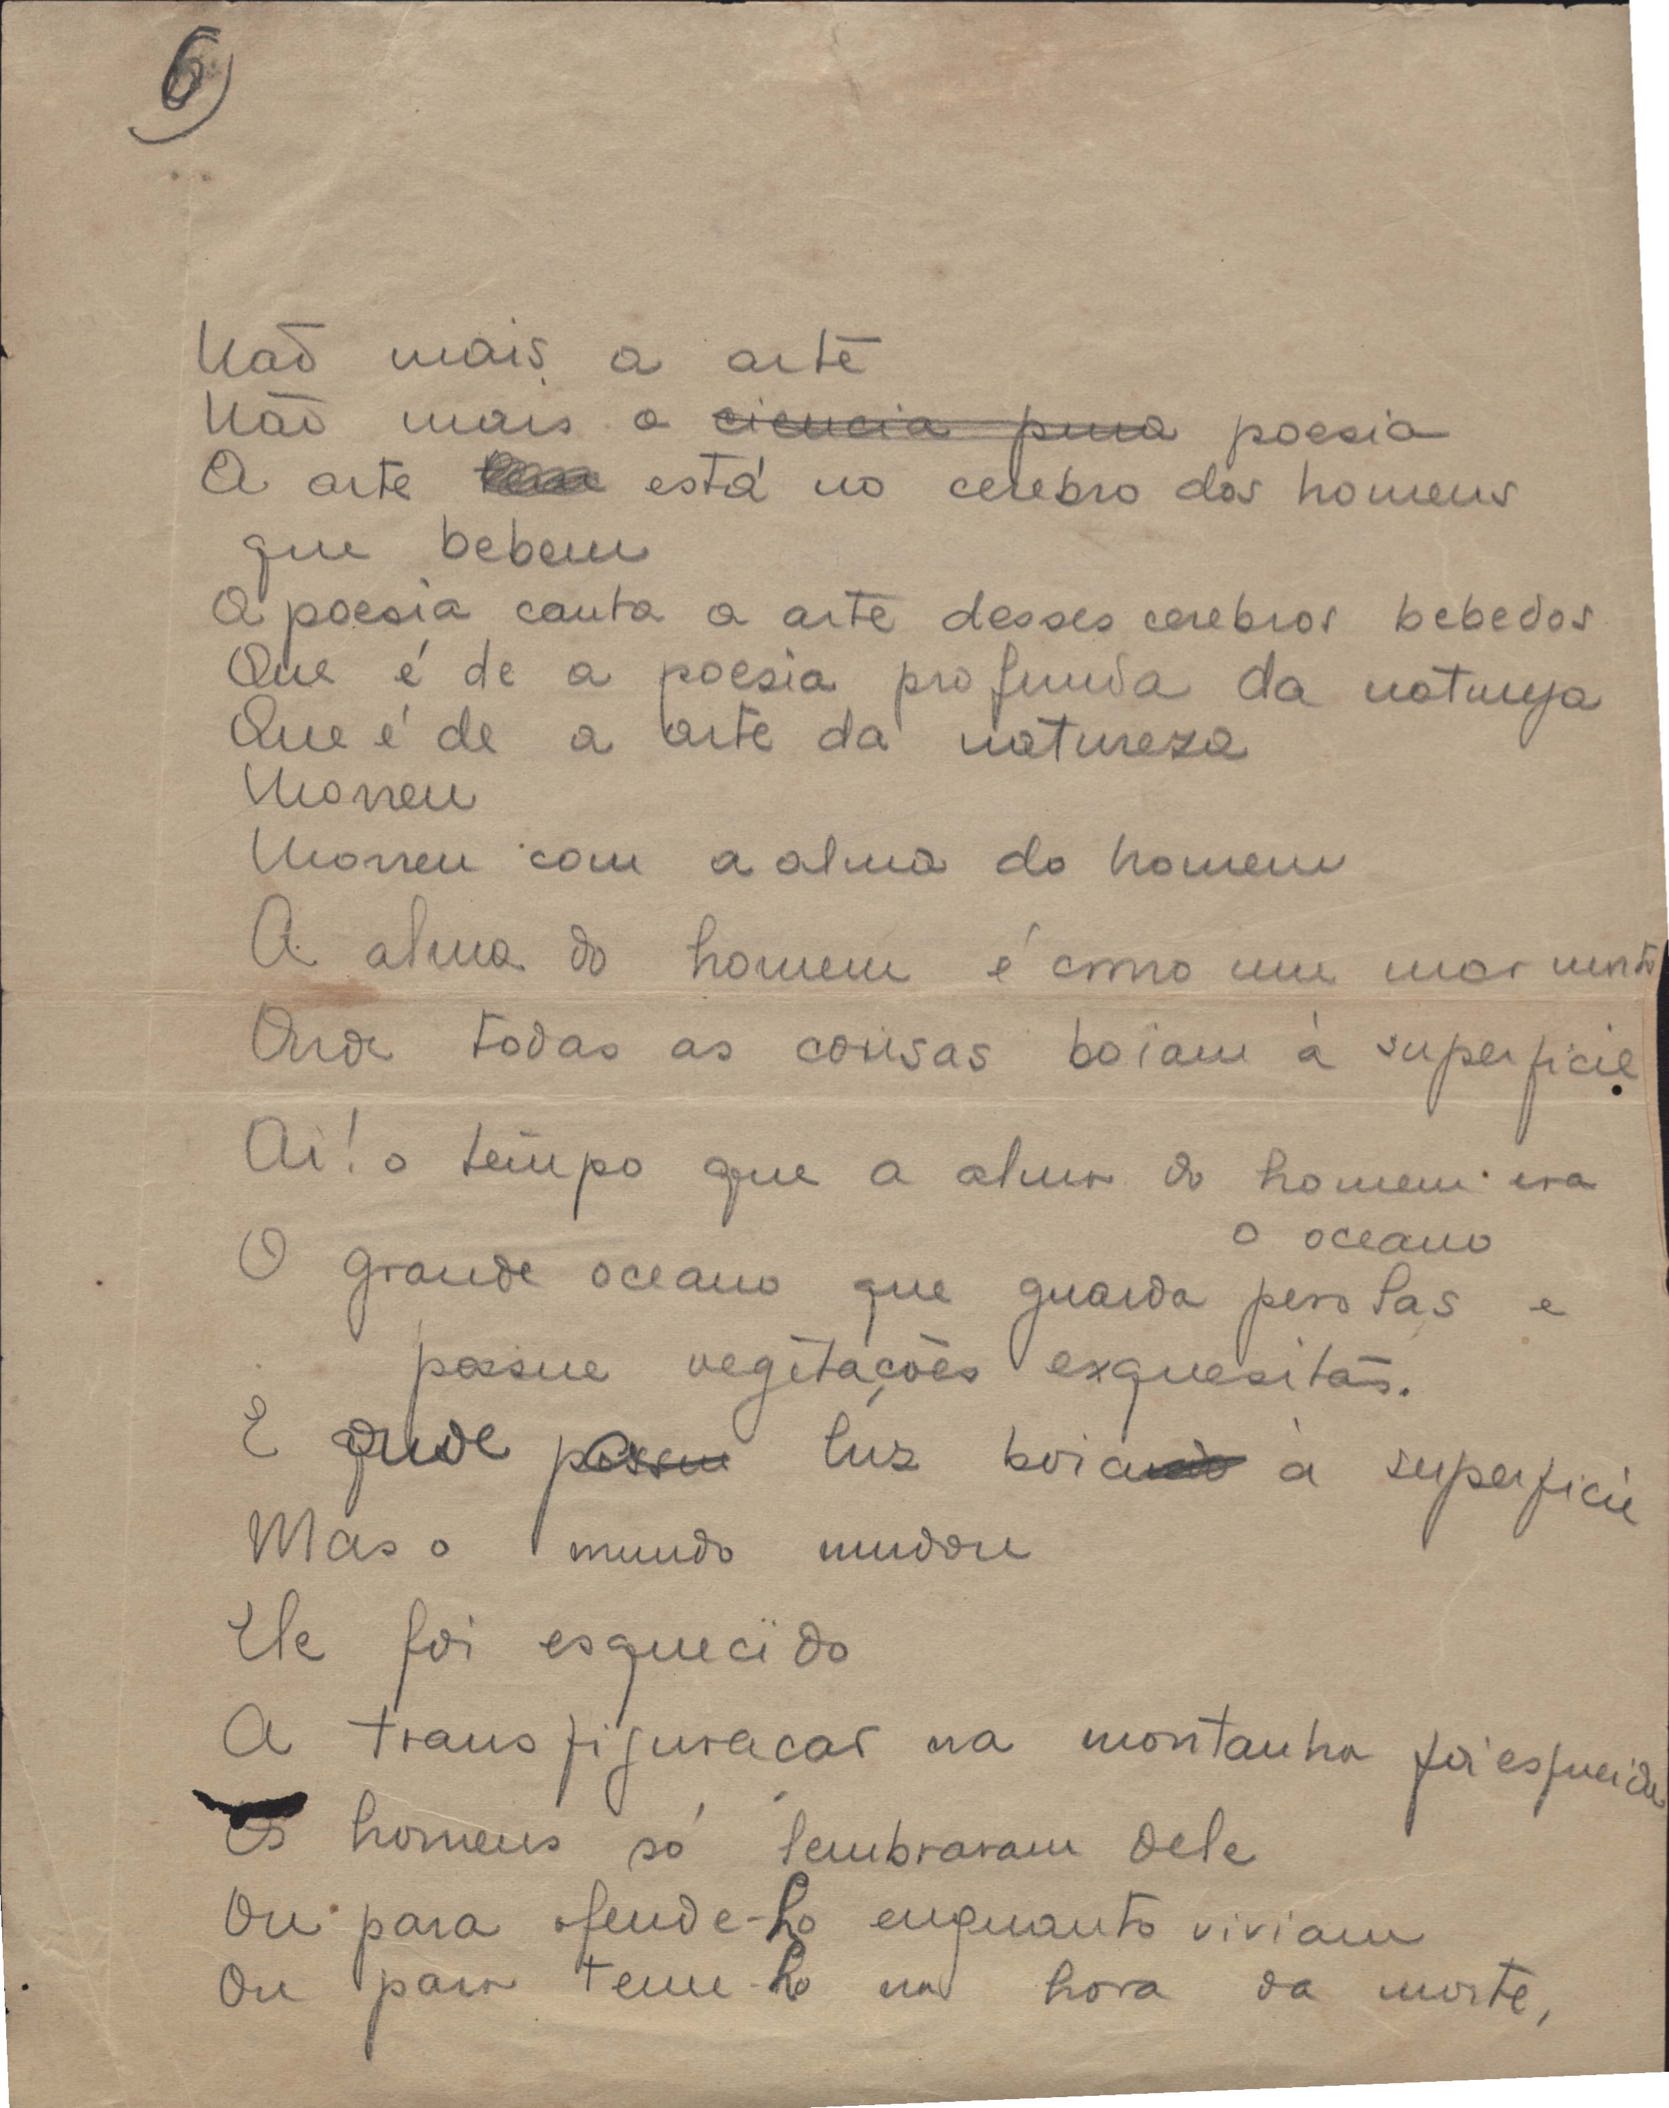 6
Não mais a arte
Não mais a ciencia pura poesia
A arte está no cerebro dos homens
que bebem
A poesia canta a arte desses cerebros bebedos
Que é de a poesia profunda da natureza
Que é de a arte da natureza
Morreu
Morreu com a alma do homem
A alma do homem é como um mar morto
Onde todas as cousas boiam à superficie.
Ai! o tempo que a alma do homem era
o oceano
O grande oceano que guarda perolas e
possue vegetações exquesitas.
E onde possue luz boiando à superficie
Mas o mundo mudou
Ele foi esquecido
A transfiguracao na montanha foi esquecida
Os homens só lembraram dele
Ou para ofende-lo enquanto viviam
Ou para teme-lo na hora da morte,